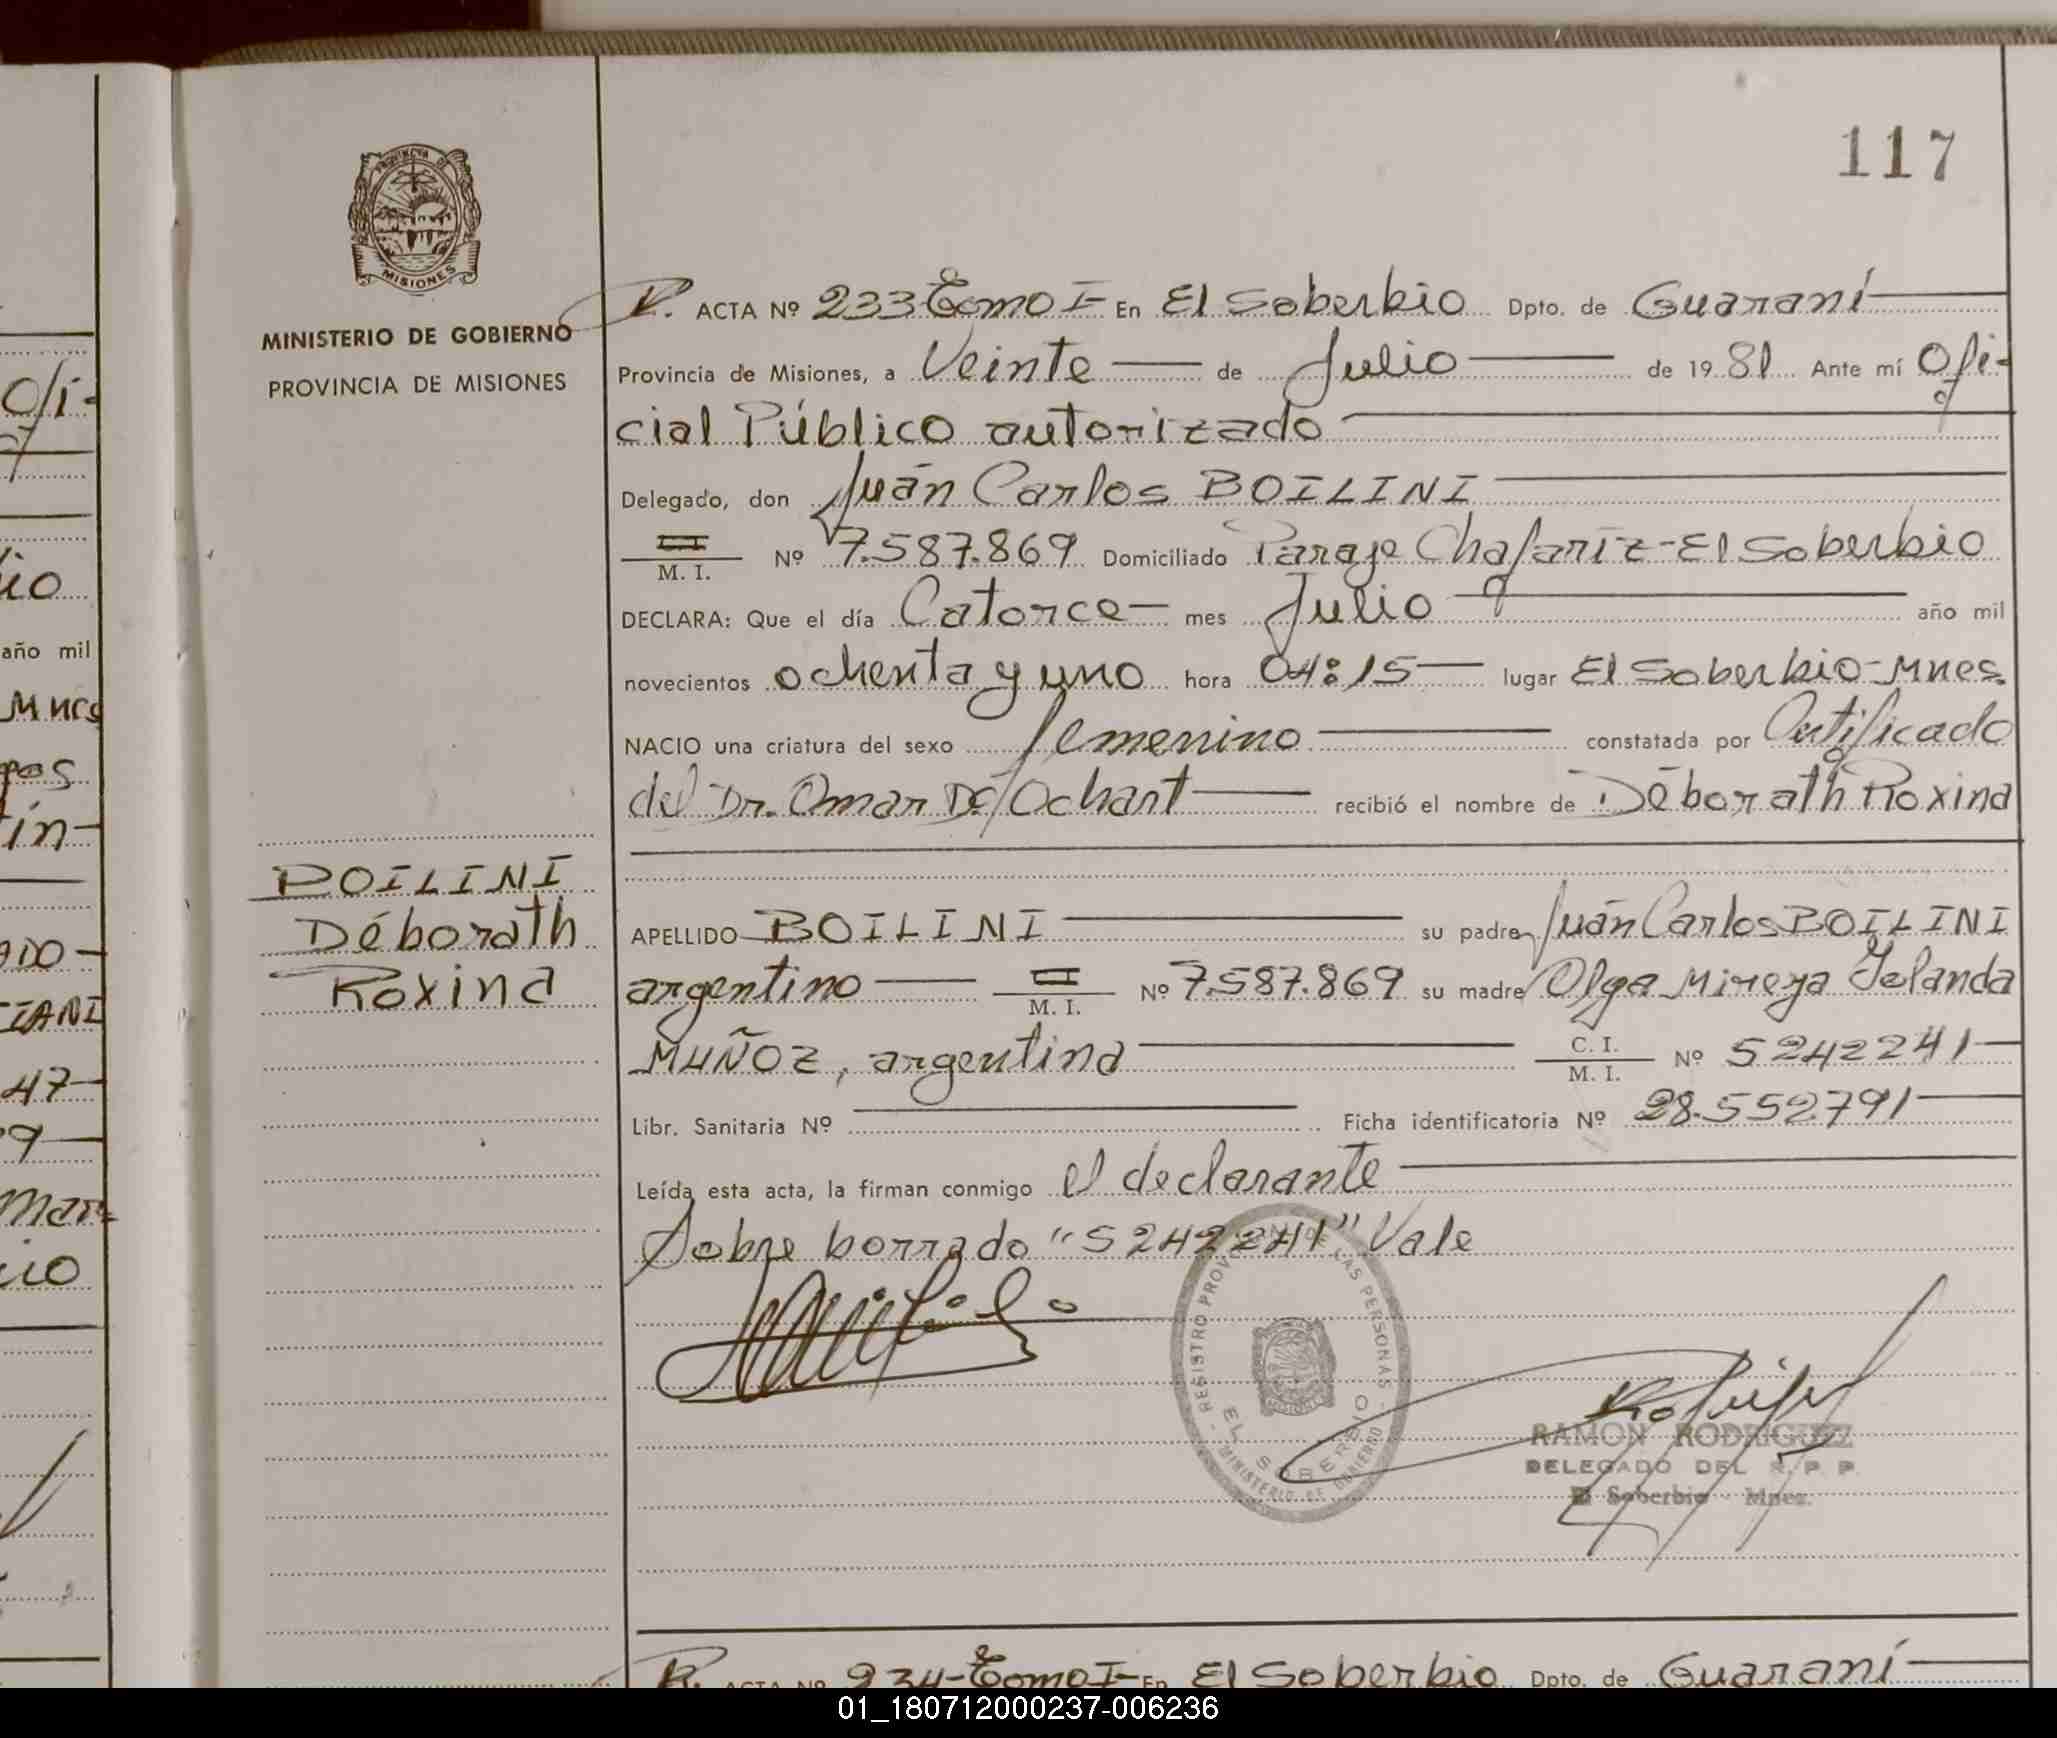 117
PROVINCIA DE
MISIONES
MINISTERIO DE GOBIERNO
PROVINCIA DE MISIONES
ACTA Nº 233-Tomo I- En El Soberbio Dpto. de Guaraní
Provincia de Misiones, a Veinte de Julio de 19 81 Ante mí Ofi-
cial Público autorizado
Delegado, don Juan Carlos BOILINI
M. I. Nº 7.587.869 Domiciliado Paraje Chafariz-El Soberbio
DECLARA: Que el día Catorce mes Julio año mil
novecientos ochenta y uno hora 04:15 lugar El Soberbio-Mnes.
NACIO una criatura del sexo femenino constatada por Certificado
del Dr. Omar D. Ochart recibió el nombre de Déborath Roxina
BOILINI
Déborath
Roxina
APELLIDO BOILINI su padre Juan Carlos BOILINI
argentino M. I. Nº 7.587.869 su madre Olga Mireya Yolanda
MUÑOZ, argentina C. I. M. I. Nº 5242241
Libr. Sanitaria Nº Ficha identificatoria Nº 28.552.791
Leída esta acta, la firman conmigo el declarante
Sobre borrado "5242241" Vale
REGISTRO PROVINCIAL DE LAS PERSONAS
EL SOBERBIO
MINISTERIO DE GOBIERNO
MISIONES
RAMON RODRIGUEZ
DELEGADO DEL R. P. P.
El Soberbio - Mnes.
ACTA Nº 234-Tomo I- En El Soberbio Dpto. de Guaraní
01_180712000237-006236